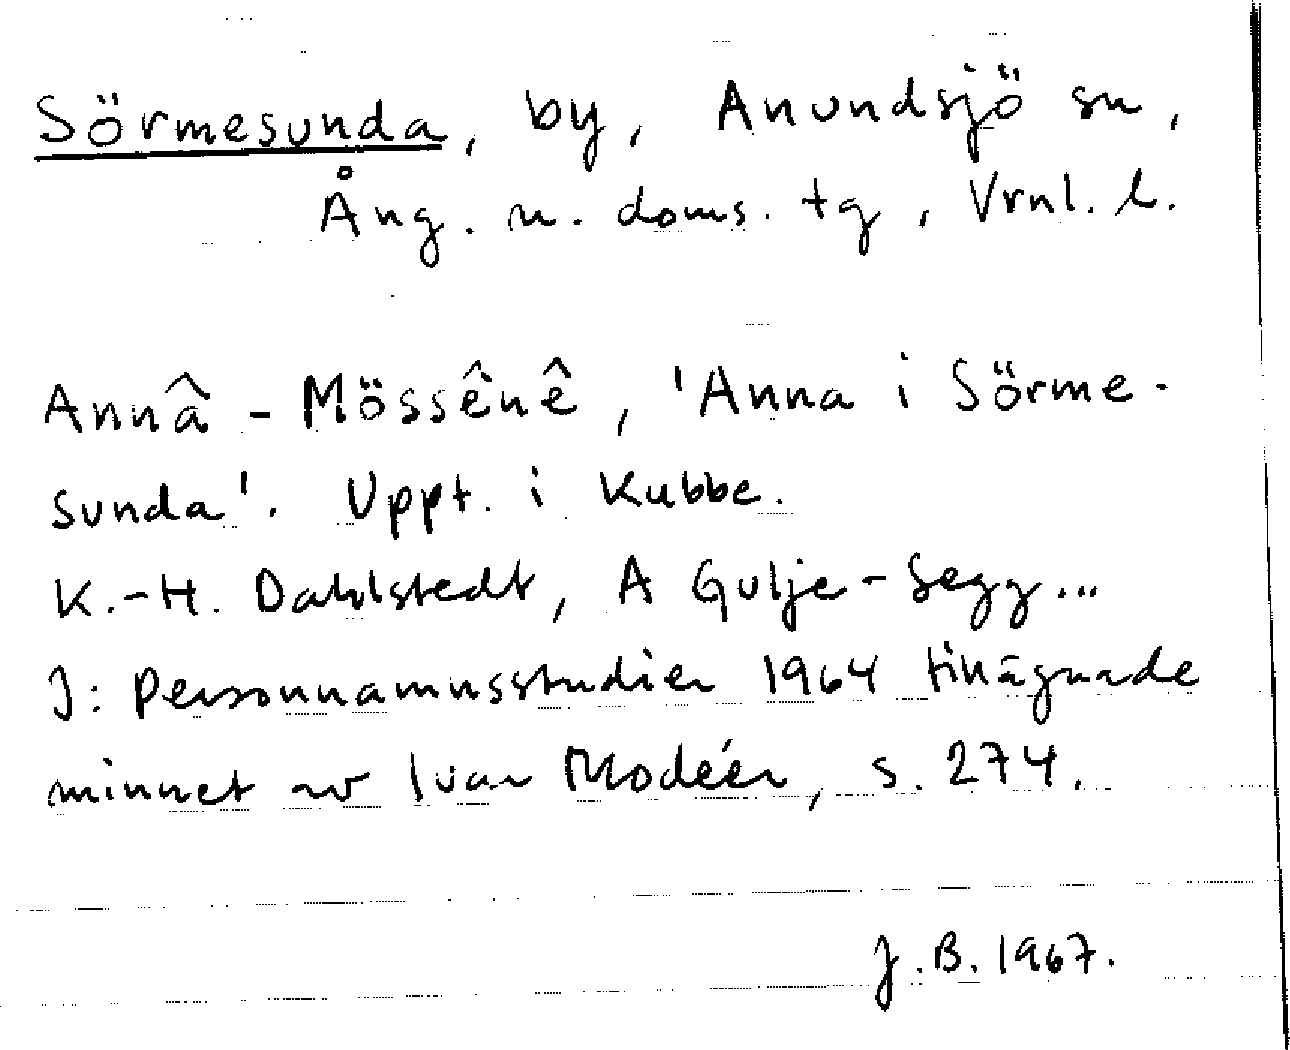 Sörmesunda, by, Anundsjö sn,
Ång. n. doms. tg, Vrnl. l.
Annâ - Mössênê, 'Anna i Sörme-
sunda'. Uppt. i Kubbe.
K.-H. Dahlstedt, A Gulje-Segg...
I: Personnamnsstudier 1964 tillägnade
minnet av Ivar Modéer, s. 274.
J.B. 1967.